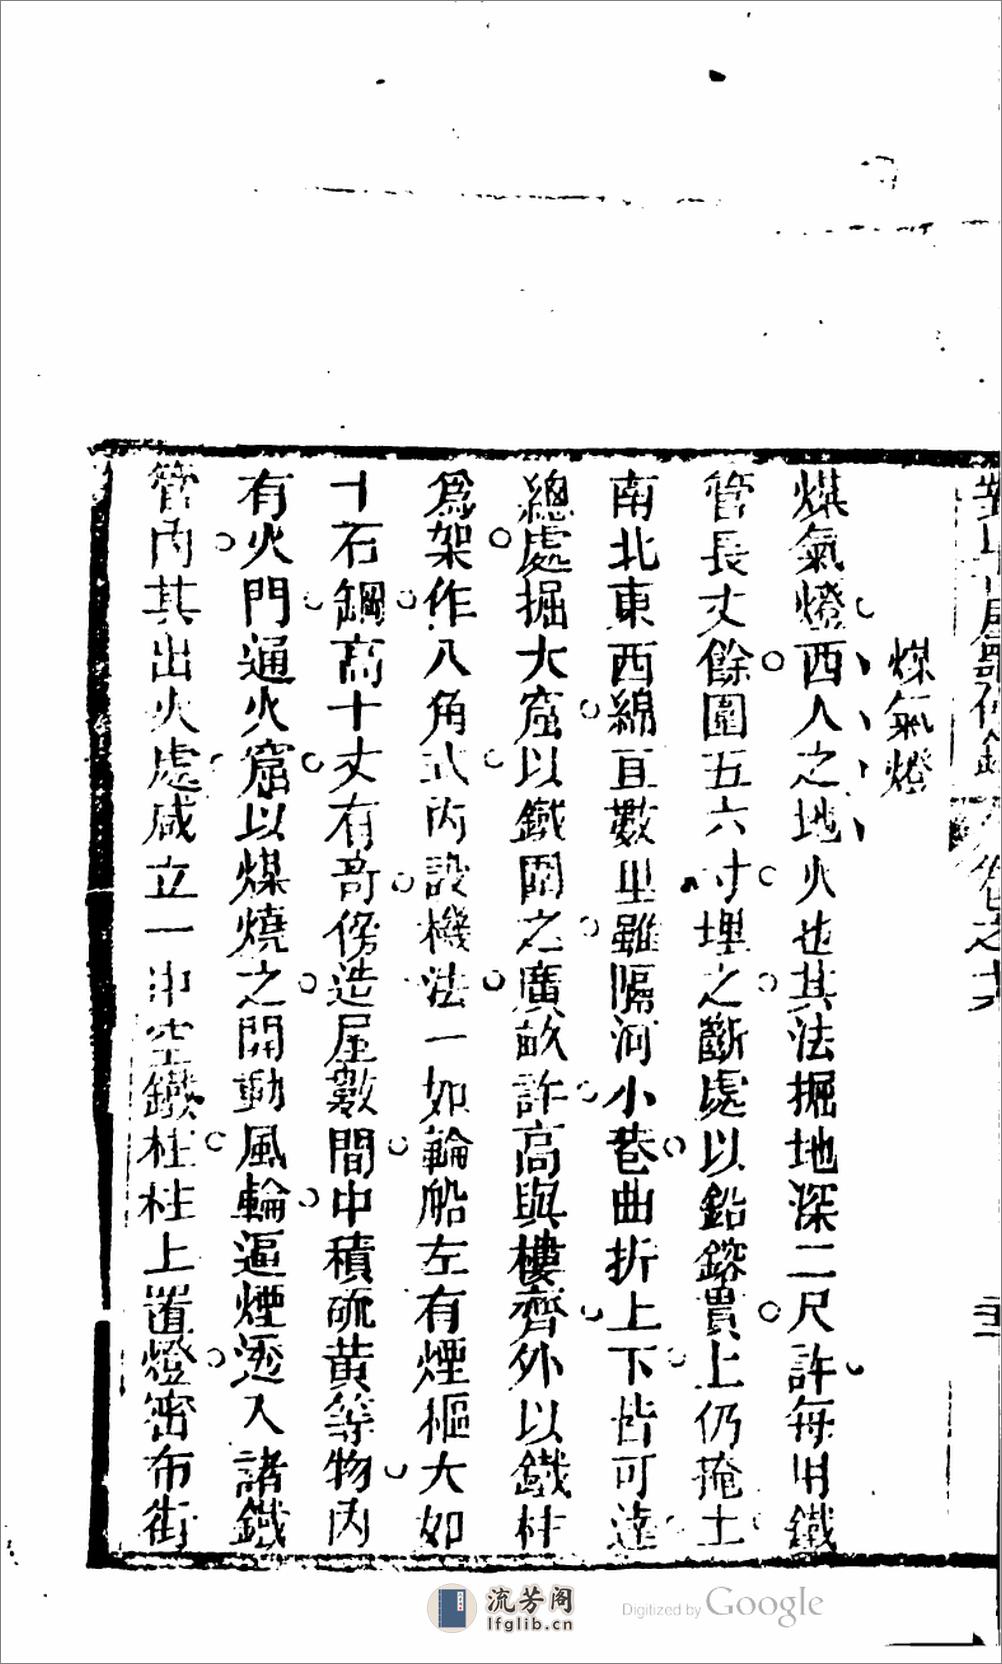 煤氣燈
煤氣燈西人之地火也其法掘地深二尺許每用鐵
管長丈餘圍五六寸埋之斷處以鉛鎔貫上仍掩土
南北東西綿亘數里雖隔河小巷曲折上下皆可達
總處掘大窟以鐵圍之廣畝許高與樓齊外以鐵柱
爲架作八角式內設機法一如輪船左有煙樞大如
十石鋼高十丈有奇傍造屋數間中積硫黄等物內
有火門通火窟以煤燒之開動風輪逼煙透入諸鐵
管內其出火處咸立一中空鐵柱柱上置燈密布街
卷之六
流芳阁
lfglib.cn
Digitized by Google